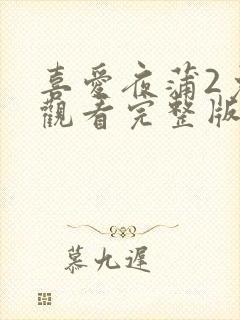 喜愛夜蒲2
觀看完整版
慕九遲